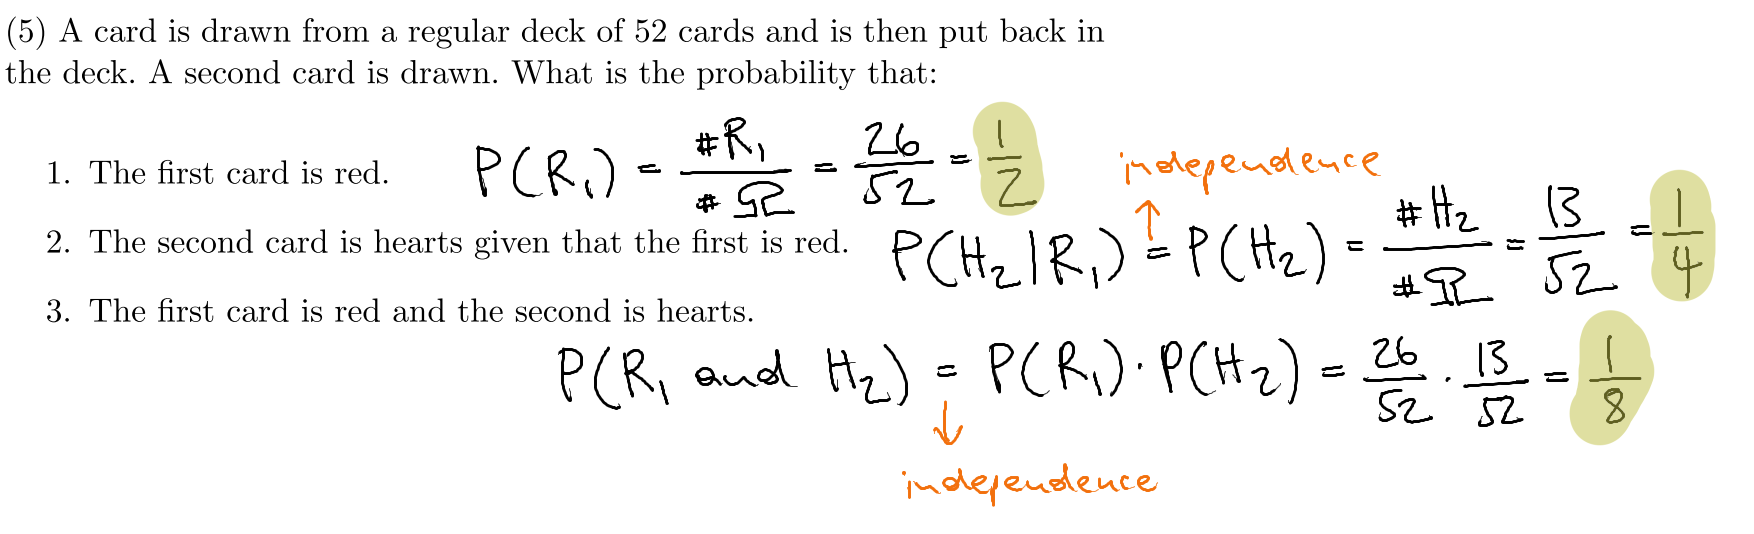 (5) A card is drawn from a regular deck of 52 cards and is then put back in
the deck. A second card is drawn. What is the probability that:
1. The first card is red. P(R₁) = #R₁/#Ω = 26/52 = 1/2
independence
2. The second card is hearts given that the first is red. P(H₂|R₁) = P(H₂) = #H₂/#Ω = 13/52 = 1/4
3. The first card is red and the second is hearts.
P(R₁ and H₂) = P(R₁) · P(H₂) = 26/52 · 13/52 = 1/8
independence